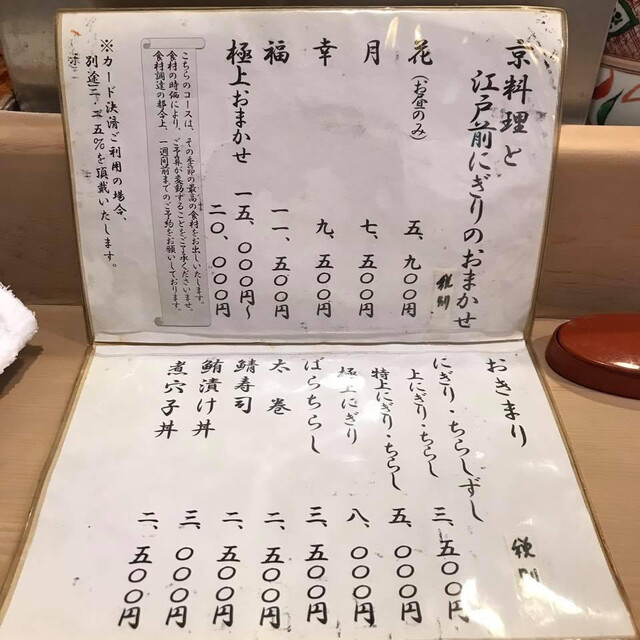 京料理と
江戸前にぎりのおまかせ
税別
花(お昼のみ) 五、九〇〇円
月 七、五〇〇円
幸 九、五〇〇円
福 一一、五〇〇円
極上おまかせ 一五、〇〇〇円〜
二〇、〇〇〇円
こちらのコースは、その季節の最高の食材をお出しいたします。
食材の時価により、ご予算が変動することをご了承くださいませ。
食材調達の都合上、一週間前までのご予約をお願いしております。
※カード決済ご利用の場合、
別途三、二五%を頂戴いたします。
おきまり
税別
にぎり・ちらしずし
上にぎり・ちらし
特上にぎり・ちらし
極上にぎり
ばらちらし
太巻
鯖寿司
鮪漬け丼
煮穴子丼
三、五〇〇円
五、〇〇〇円
八、〇〇〇円
三、五〇〇円
二、五〇〇円
二、五〇〇円
三、〇〇〇円
二、五〇〇円